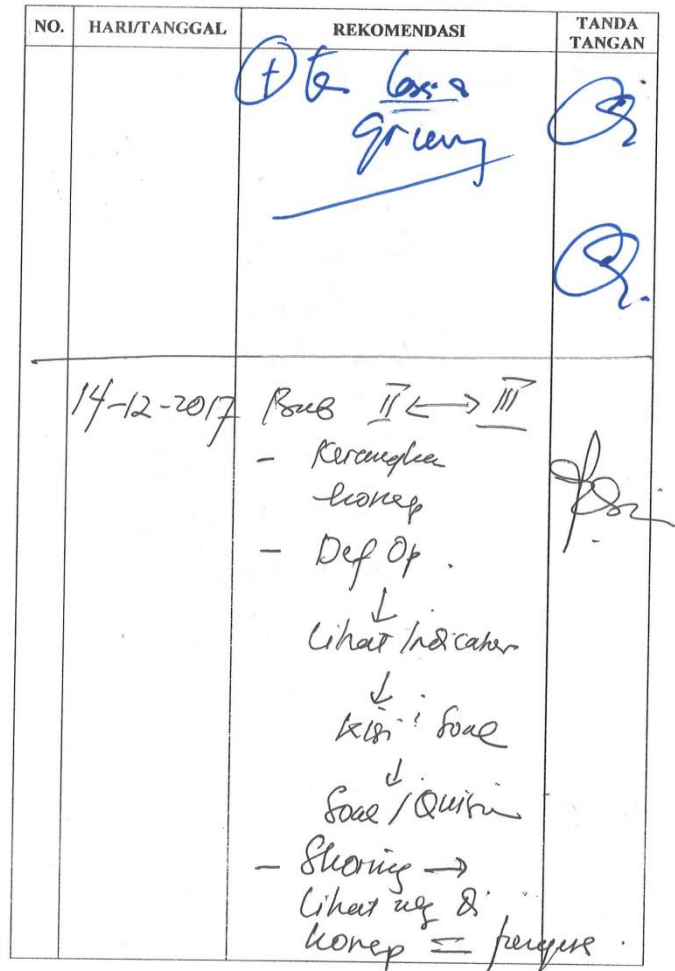 NO. HARI/TANGGAL REKOMENDASI TANDA TANGAN
+ loss &
14-12-2017 Bab II ↔ III
- Kerangka
konsep
- Def Op.
↓
Lihat / Indicator
↓
Kisi² Soal
↓
Soal / Quisin
- Skoring →
Lihat neg &
konsep =